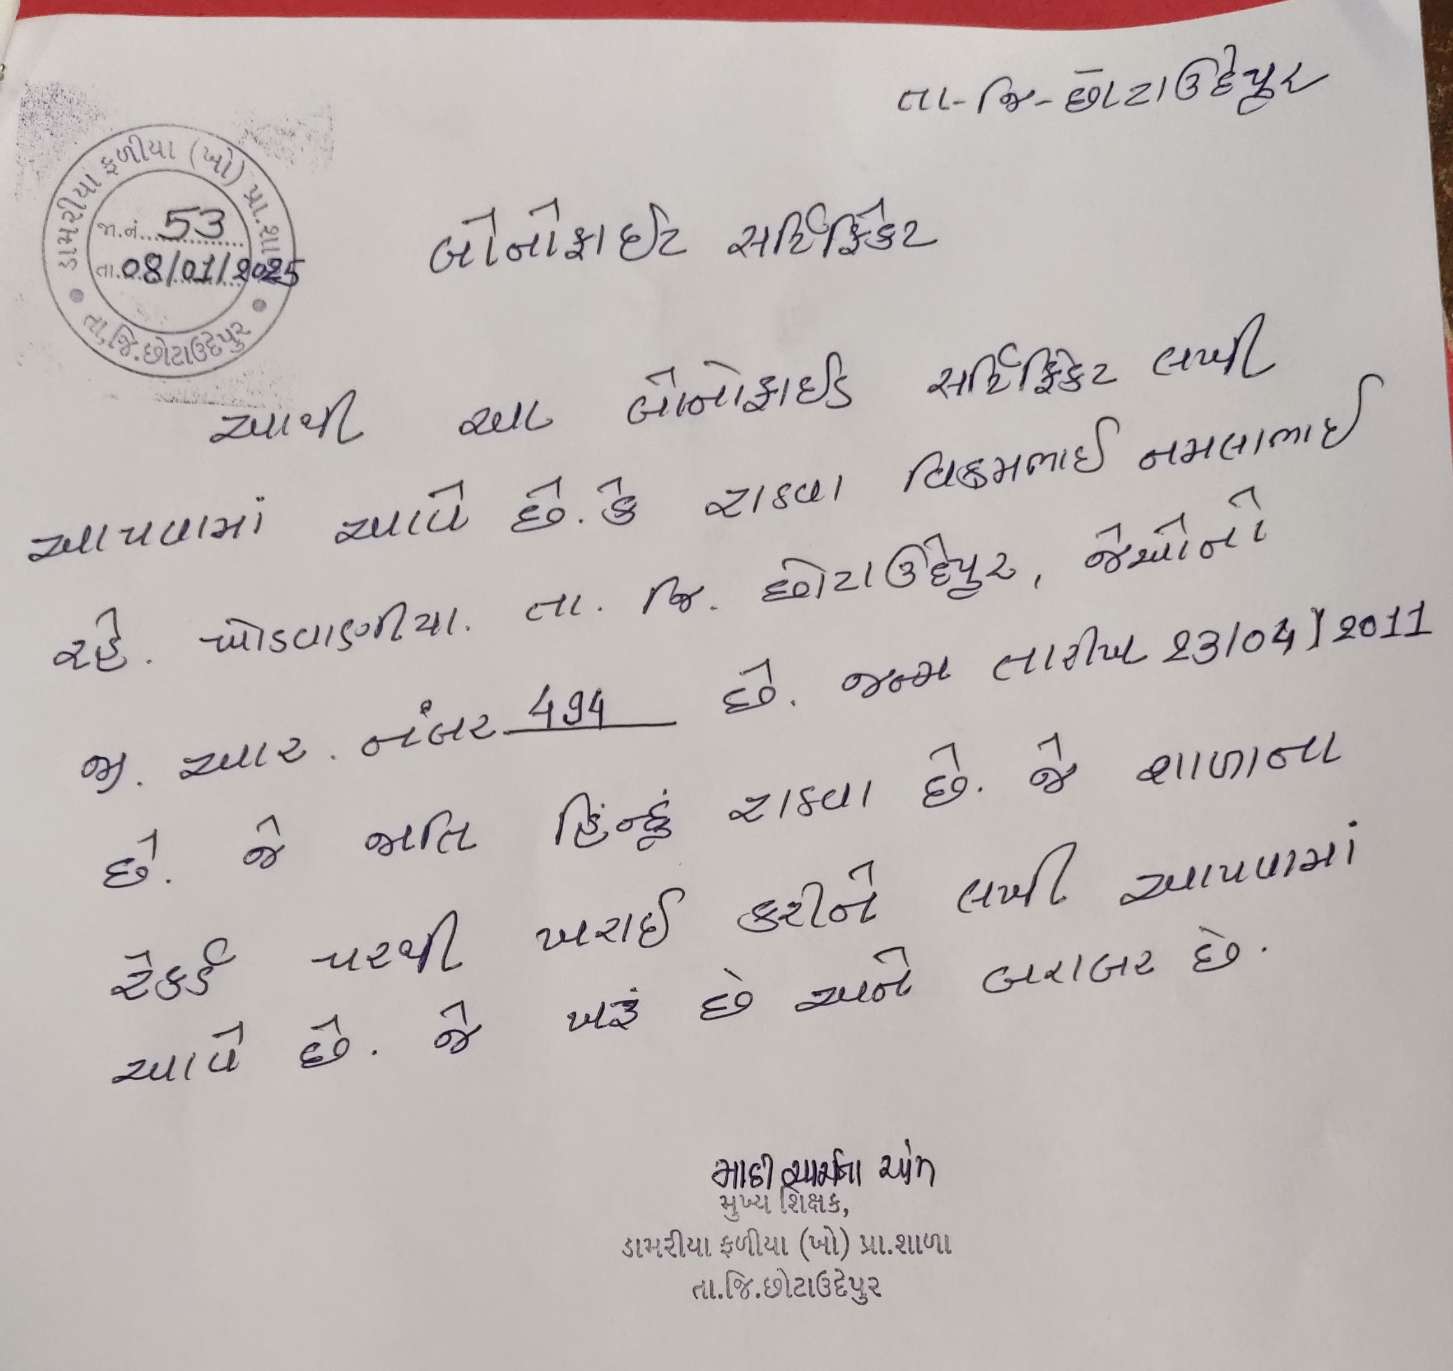 તા-જિ-છોટાઉદેપુર
ડામરીયા ફળીયા (ખો) પ્રા.શા
જા.નં. 53
તા. 08/01/2025
તા,જિ.છોટાઉદેપુર
બોનોફાઈટ સર્ટિફિકેટ
આથી આ બોનોફાઈડ સર્ટિફિકેટ લખી
આપવામાં આવે છે. કે રાઠવા વિક્રમભાઈ નમલાભાઈ
રહે. ઓડવાફળીયા. તા. જિ. છોટાઉદેપુર, જેઓનો
જી. આર. નંબર 494 છે. જન્મ તારીખ 23/04/2011
છે. જે જાતિ હિન્દું રાઠવા છે. જે શાળાના
રેકર્ડ પરથી ખરાઈ કરીને લખી આપવામાં
આવે છે. જે ખરૂં છે અને બરાબર છે.
મુખ્ય શિક્ષક,
ડામરીયા ફળીયા (ખો) પ્રા.શાળા
તા.જિ.છોટાઉદેપુર